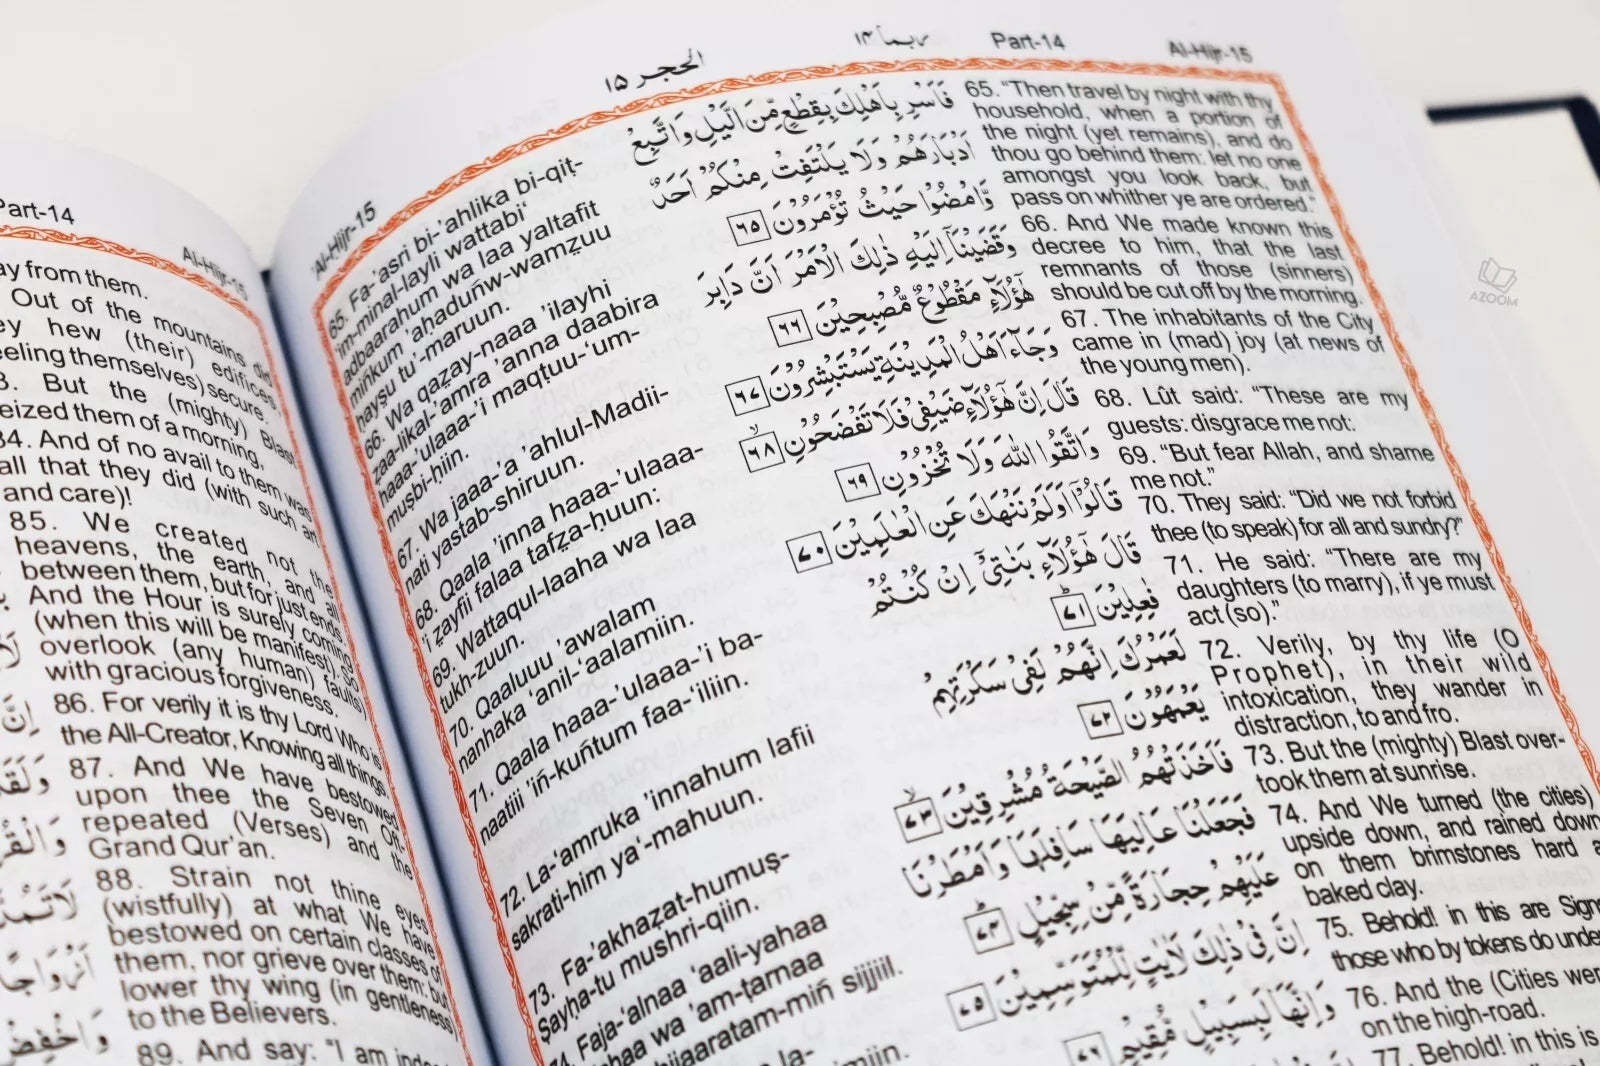 Part-14
Al-Hijr-15
ay from them.
Out of the mountains did
ey hew (their) edifices,
eeling themselves) secure.
3. But the (mighty) Blast
eized them of a morning,
84. And of no avail to them was
all that they did (with such art
and care)!
85. We created not the
heavens, the earth, and all
between them, but for just ends.
And the Hour is surely coming
(when this will be manifest). So
overlook (any human) faults)
with gracious forgiveness.
86. For verily it is thy Lord Who is
the All-Creator, Knowing all things.
87. And We have bestowed
upon thee the Seven Oft-
repeated (Verses) and the
Grand Qur'an.
88. Strain not thine eyes
(wistfully) at what We have
bestowed on certain classes of
them, nor grieve over them: but
lower thy wing (in gentleness)
to the Believers.
89. And say: "I am
إِنَّ
وَلَقَدْ
وَالْقُرْ
لَا تَمُدَّ
أَزْوَاجًا
وَاخْفِضْ
'Al-Ḥijr-15
الحجر ١٥
ربما ١٤
Part-14
Al-Hijr-15
65. Fa-'asri bi-'ahlika bi-qiṭ-
'im-minal-layli wattabi'
adbaarahum wa laa yaltafit
minkum 'aḥaduñw-wamẓuu
haysu tu'-maruun.
66. Wa qaẓay-naaa 'ilayhi
zaa-likal-'amra 'anna daabira
haaa-'ulaaa-'i maqṭuu-'um-
muṣbi-ḥiin.
67. Wa jaaa-'a 'ahlul-Madii-
nati yastab-shiruun.
68. Qaala 'inna haaa-'ulaaa-
'i ẓayfii falaa tafẓa-ḥuun:
69. Wattaqul-laaha wa laa
tukh-zuun.
70. Qaaluuu 'awalam
nanhaka 'anil-'aalamiin.
71. Qaala haaa-'ulaaa-'i ba-
naatiii 'iñ-kuñtum faa-'iliin.
72. La-'amruka 'innahum lafii
sakrati-him ya'-mahuun.
73. Fa-'akhaẓat-humuṣ-
Ṣayḥa-tu mushri-qiin.
74. Faja-'alnaa 'aali-yahaa
haa wa 'am-ṭarnaa
hijaaratam-miñ sijjiil.
la-
فَاَسْرِ بِاَهْلِكَ بِقِطْعٍ مِّنَ الَّيْلِ وَاتَّبِعْ
اَدْبَارَهُمْ وَلَا يَلْتَفِتْ مِنْكُمْ اَحَدٌ
وَّامْضُوْا حَيْثُ تُؤْمَرُوْنَ ٦٥
وَقَضَيْنَآ اِلَيْهِ ذٰلِكَ الْاَمْرَ اَنَّ دَابِرَ
هٰٓؤُلَآءِ مَقْطُوْعٌ مُّصْبِحِيْنَ ٦٦
وَجَآءَ اَهْلُ الْمَدِيْنَةِ يَسْتَبْشِرُوْنَ ٦٧
قَالَ اِنَّ هٰٓؤُلَآءِ ضَيْفِيْ فَلَا تَفْضَحُوْنِ ٦٨
وَاتَّقُوا اللّٰهَ وَلَا تُخْزُوْنِ ٦٩
قَالُوْٓا اَوَلَمْ نَنْهَكَ عَنِ الْعٰلَمِيْنَ ٧٠
قَالَ هٰٓؤُلَآءِ بَنٰتِيْٓ اِنْ كُنْتُمْ
فٰعِلِيْنَ ٧١
لَعَمْرُكَ اِنَّهُمْ لَفِيْ سَكْرَتِهِمْ
يَعْمَهُوْنَ ٧٢
فَاَخَذَتْهُمُ الصَّيْحَةُ مُشْرِقِيْنَ ٧٣
فَجَعَلْنَا عَالِيَهَا سَافِلَهَا وَاَمْطَرْنَا
عَلَيْهِمْ حِجَارَةً مِّنْ سِجِّيْلٍ ٧٤
اِنَّ فِيْ ذٰلِكَ لَاٰيٰتٍ لِّلْمُتَوَسِّمِيْنَ ٧٥
وَاِنَّهَا لَبِسَبِيْلٍ مُّقِيْمٍ ٧٦
65. "Then travel by night with thy
household, when a portion of
the night (yet remains), and do
thou go behind them: let no one
amongst you look back, but
pass on whither ye are ordered."
66. And We made known this
decree to him, that the last
remnants of those (sinners)
should be cut off by the morning.
67. The inhabitants of the City
came in (mad) joy (at news of
the young men).
68. Lût said: "These are my
guests: disgrace me not:
69. "But fear Allah, and shame
me not."
70. They said: "Did we not forbid
thee (to speak) for all and sundry?"
71. He said: "There are my
daughters (to marry), if ye must
act (so)."
72. Verily, by thy life (O
Prophet), in their wild
intoxication, they wander in
distraction, to and fro.
73. But the (mighty) Blast over-
took them at sunrise.
74. And We turned (the cities)
upside down, and rained down
on them brimstones hard a
baked clay.
75. Behold! in this are Signs
those who by tokens do unde
76. And the (Cities were
on the high-road.
77. Behold! in this is
AZOOM